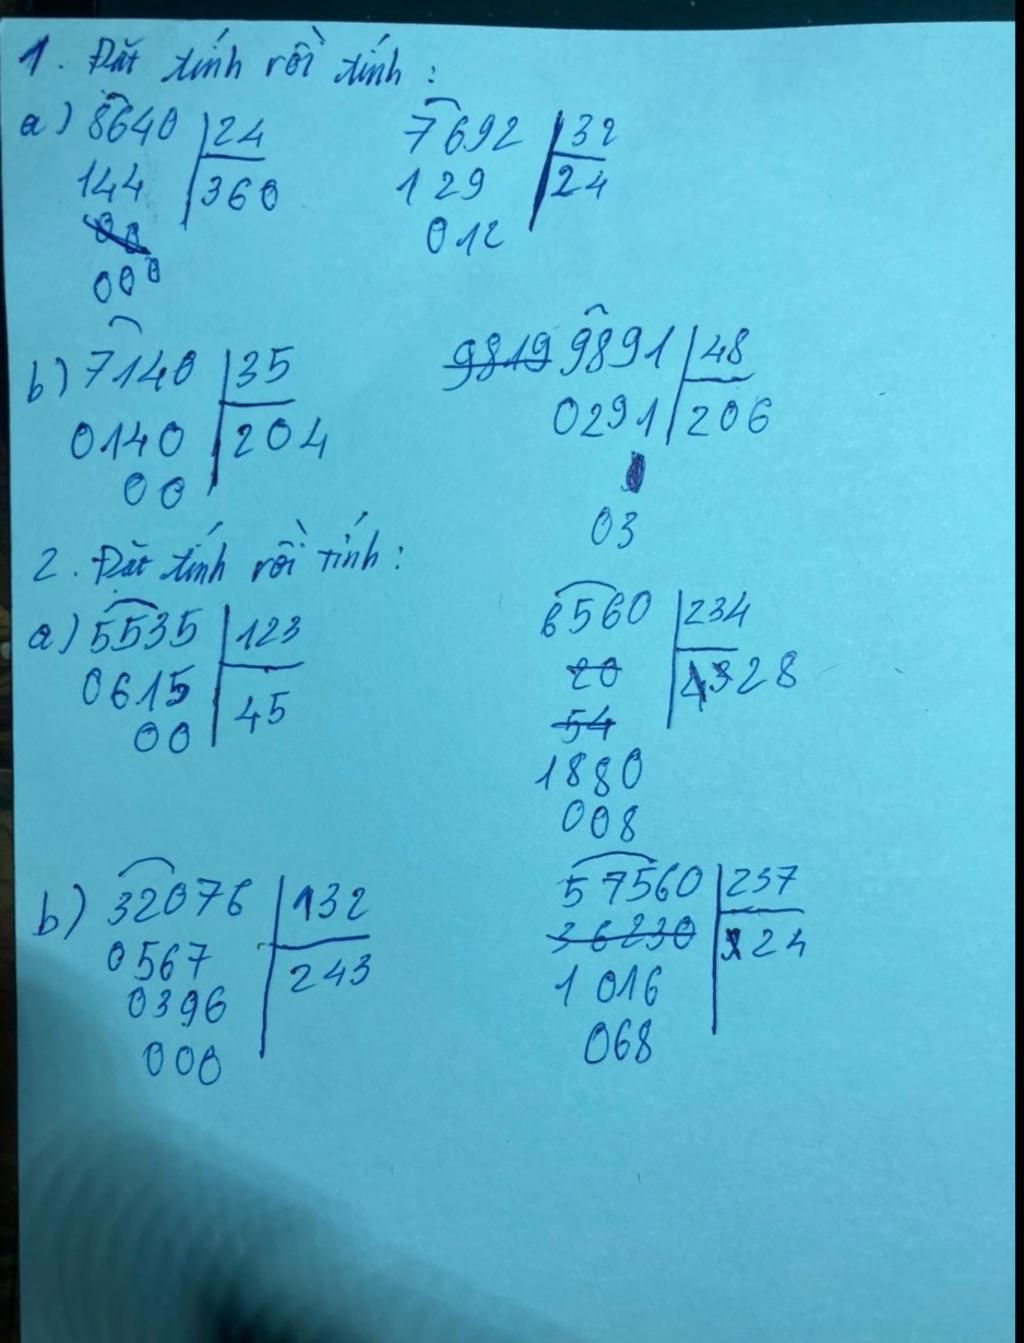 1. Đặt tính rồi tính :
a) 8640 24 7692 32
144 360 129 24
00 012
000
b) 7140 35 9819 9891 48
0140 204 0291 206
00
03
2. Đặt tính rồi tính :
a) 5535 123 6560 234
0615 45 20 28
00 54
1880
008
b) 32076 132 57560 237
0567 243 36230 24
0396 1016
000 068